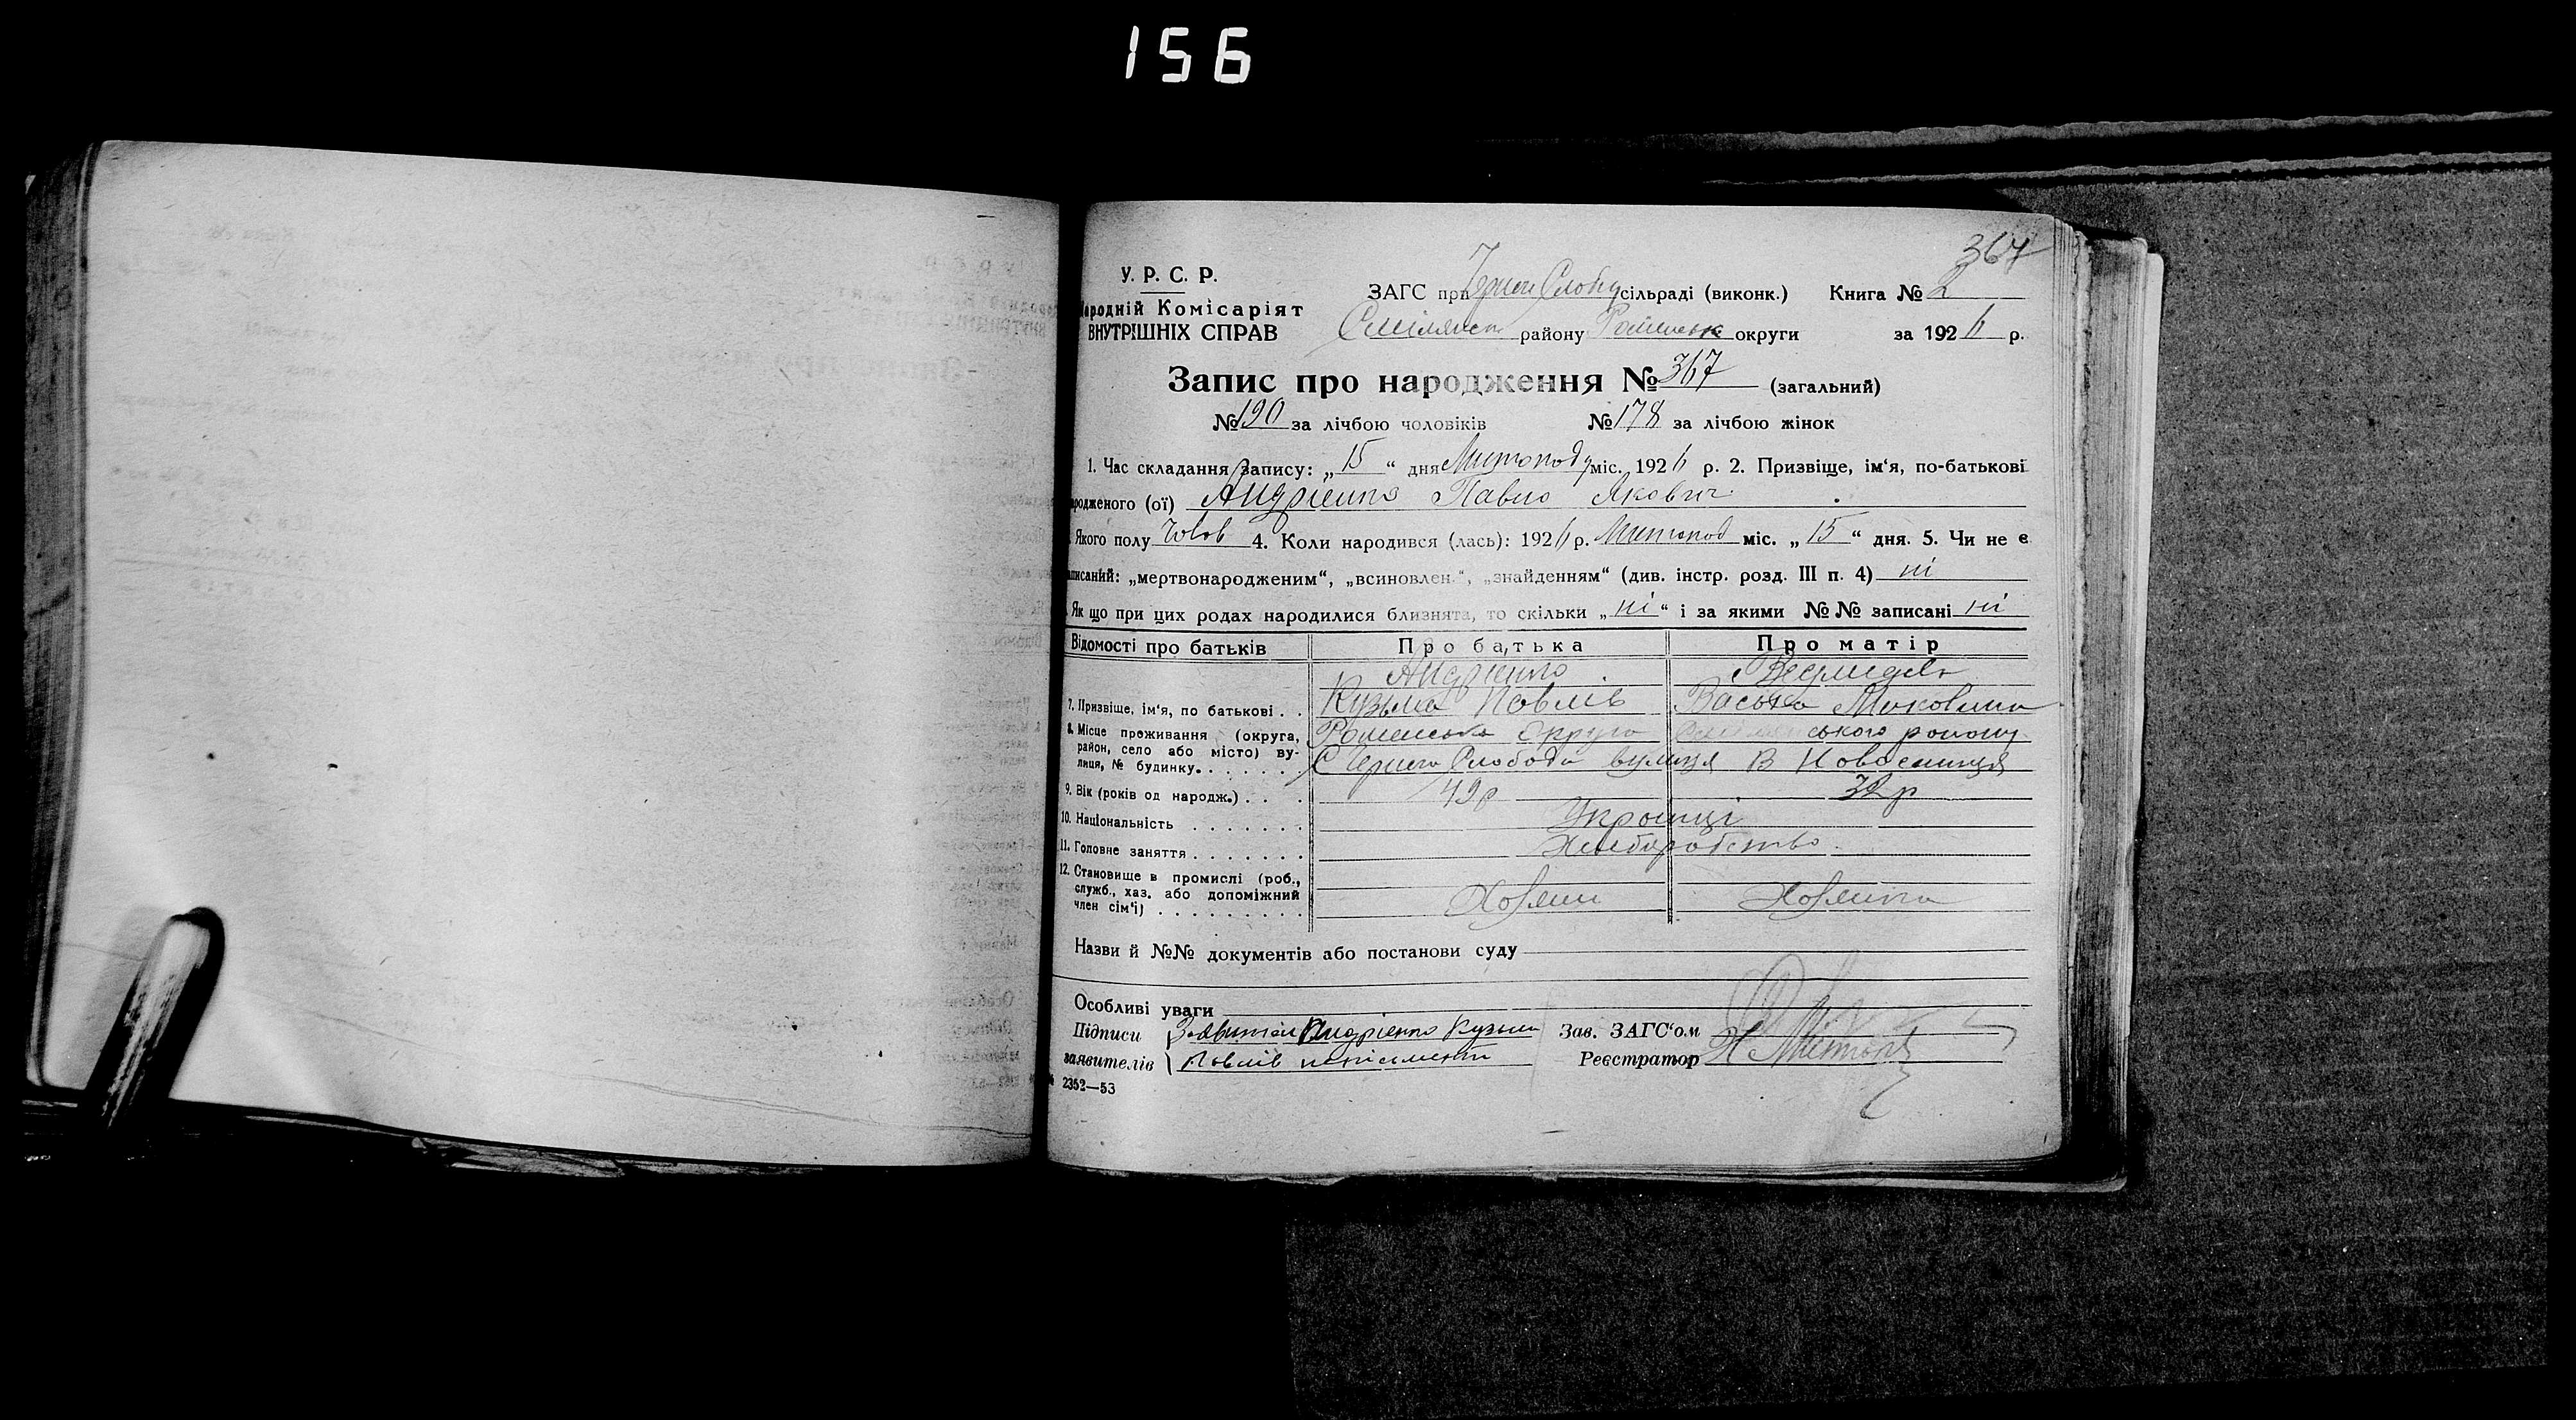 156
367
У. Р. С. Р.
Народній Комісаріят
ВНУТРІШНІХ СПРАВ
ЗАГС при Черн Слобід сільраді (виконк.) Книга № 2
Смілянськ району Роменськ округи за 1926 р.
Запис про народження № 367 (загальний)
№ 190 за лічбою чоловіків № 178 за лічбою жінок
1. Час складання запису: „ 15 “ дня Листопаду міс. 1926 р. 2. Призвіще, ім'я, по-батькові
родженого (ої) Андрієнко Павло Якович
Якого полу Чолов 4. Коли народився (лась): 1926 р. Листопад міс. „ 15 “ дня. 5. Чи не є
записаний: „мертвонародженим“, „всиновлен.“, „знайденням“ (див. інстр. розд. III п. 4) ні
Як що при цих родах народилися близнята, то скільки „ ні “ і за якими №№ записані ні
Відомості про батьків Про батька Про матір
Андрієнко
7. Призвіще, ім'я, по батькові . . Кузьма Павлів Васька Яковлина
8. Місце проживання (округа, район, село або місто) вулиця, № будинку. Роменська Округа ського району
С Черна Слобода вулиця В Новоселиця
9. Вік (років од народж.) . . . 49 р 32 р
10. Національність . . . . . . . Украінці
11. Головне заняття . . . . . . . Хліборобство
12. Становище в промислі (роб.,
служб., хаз. або допоміжний
член сім'ї) . . . . . . . . . Хозяин Хозяйка
Назви й №№ документів або постанови суду
Особливі уваги
Підписи Заявител Андрієнко Кузьма Зав. ЗАГС'ом
заявителів Павлів неписьмений Реєстратор
2352—53